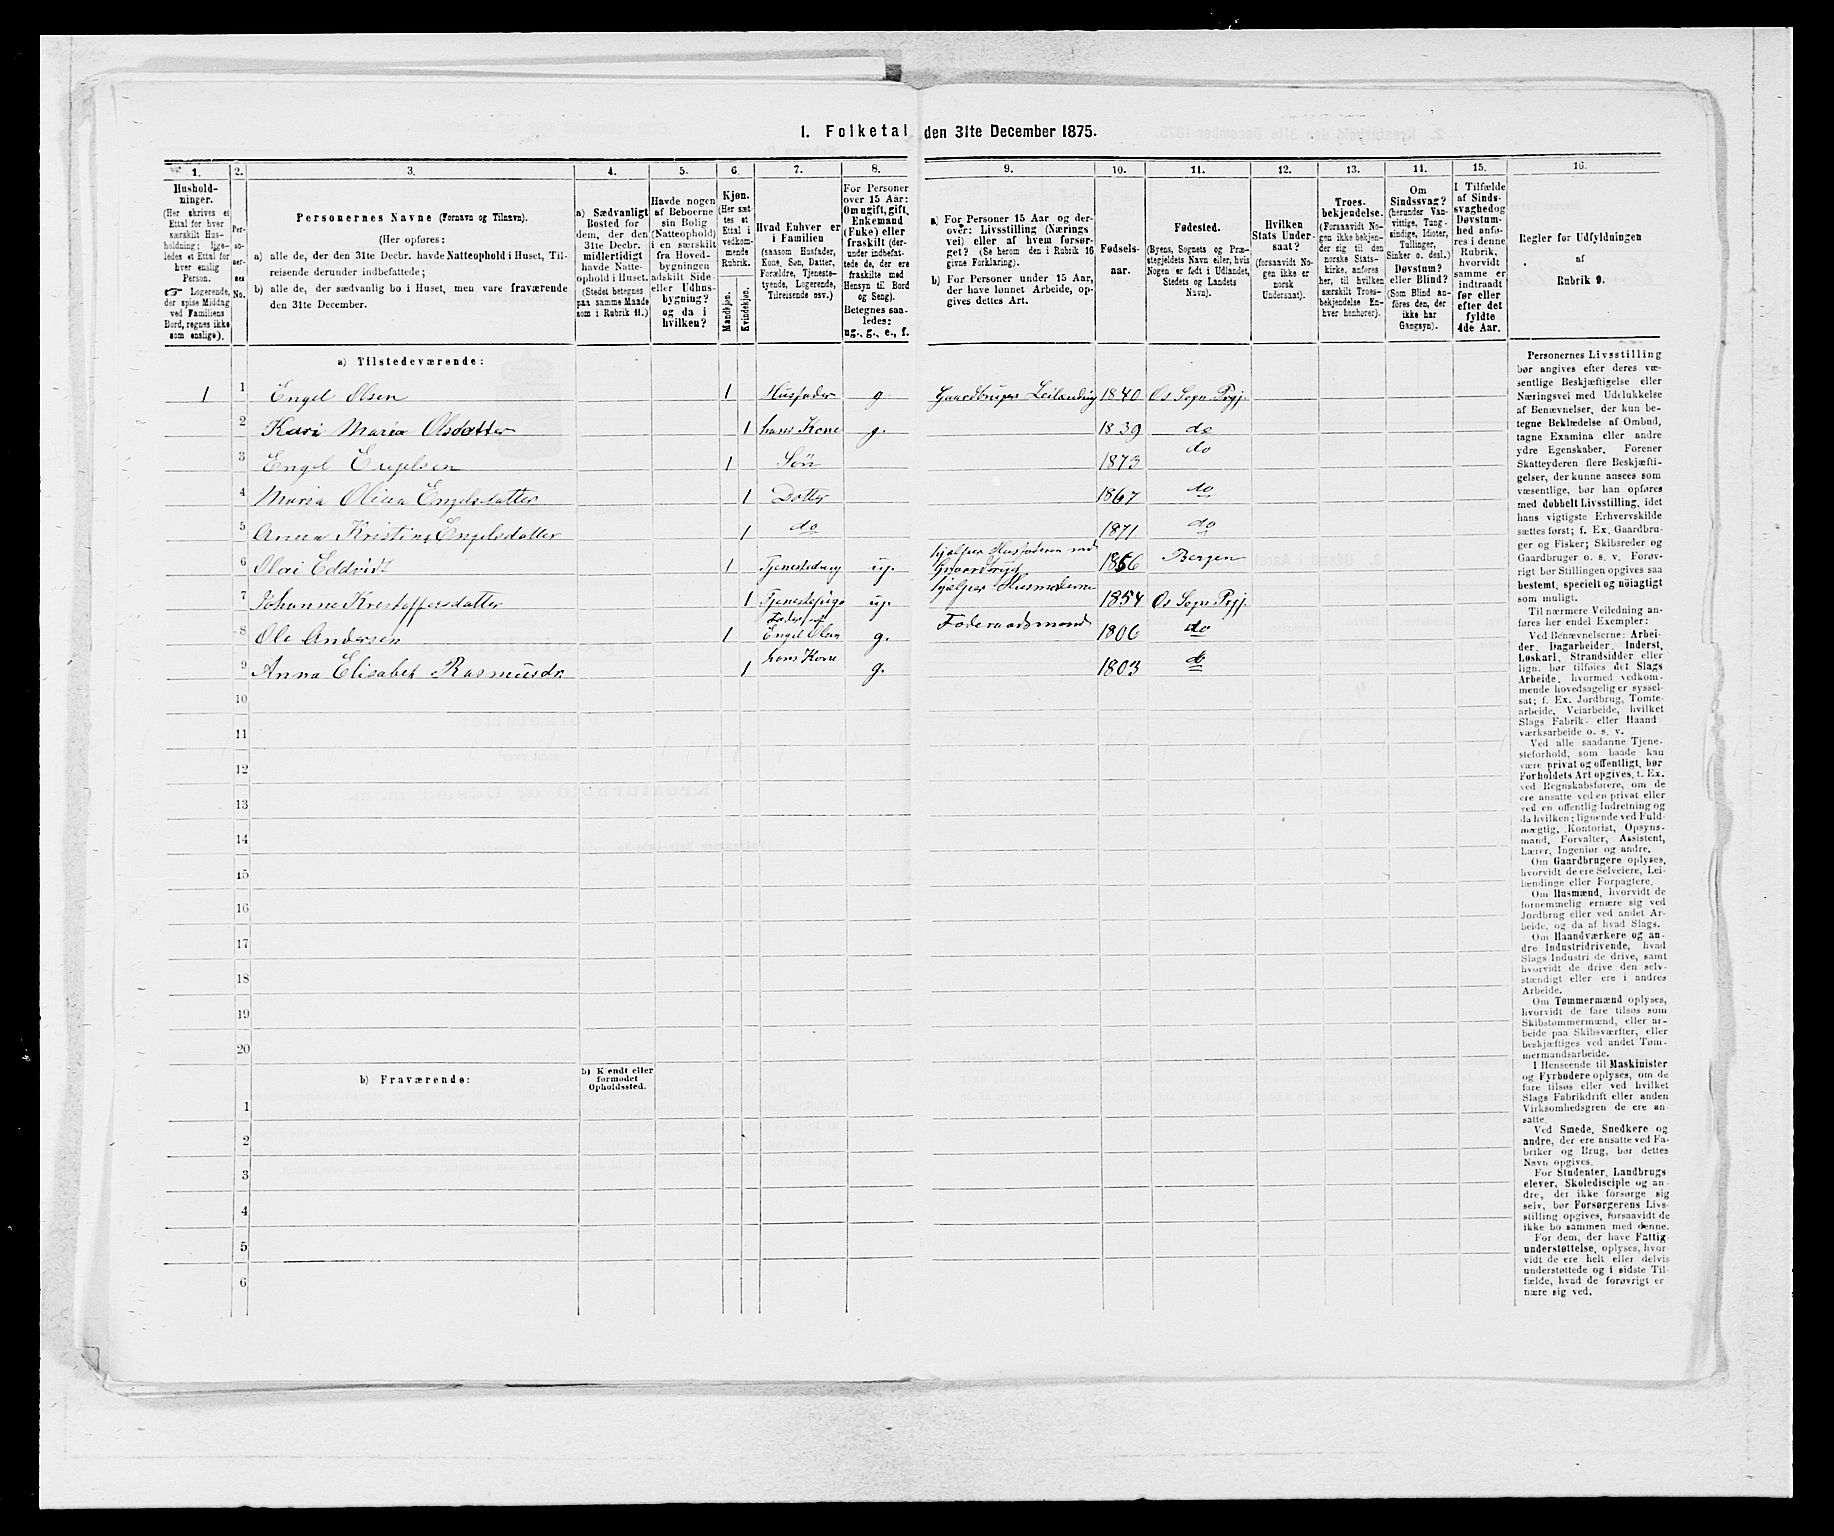 1. Folketal den 31te December 1875.
1. 2. 3. 4. 5. 6. 7. 8. 9. 10. 11. 12. 13. 14. 15. 16.
Hushold-
ninger.
(Her skrives et
Ettal for hver
særskilt Hus-
holdning; lige-
ledes et Ettal for
hver enslig
Person.
☞ Logerende,
der spise Middag
ved Familiens
Bord, regnes ikke
som enslige).
Per-
so-
ner-
nes
No.
Personernes Navne (Fornavn og Tilnavn).
(Her opføres:
a) alle de, der den 31te Decbr. havde Natteophold i Huset, Til-
reisende derunder indbefattede;
b) alle de, der sædvanlig bo i Huset, men vare fraværende
den 31te December.
a) Sædvanligt
Bosted for
dem, der den
31te Decbr.
midlertidigt
havde Natte-
ophold i Huset.
(Stedet betegnes
paa samme Maade
som i Rubrik 11.)
Havde nogen
af Beboerne
sin Bolig
(Natteophold)
i en særskilt
fra Hoved-
bygningen
adskilt Side
eller Udhus-
bygning?
og da i
hvilken?
Kjøn.
(Her sæt-
tes et
Ettal i
vedkom-
mende
Rubrik.
Mandkjøn.
Kvindekjøn.
Hvad Enhver er
i Familien
(saasom Husfader,
Kone, Søn, Datter,
Forældre, Tjeneste-
tyende, Logerende,
Tilreisende osv.)
For Personer
over 15 Aar:
Om ugift, gift,
Enkemand
(Enke) eller
fraskilt (der-
under indbefat-
tede de, der ere
fraskilte med
Hensyn til Bord
og Seng).
Betegnes saa-
ledes:
ug., g., e., f.
a) For Personer 15 Aar og der-
over: Livsstilling (Nærings
vei) eller af hvem forsør-
get? (Se herom den i Rubrik 16
givne Forklaring).
b) For Personer under 15 Aar,
der have lønnet Arbeide, op-
gives dettes Art.
Fødsels-
aar.
Fødested.
(Byens, Sognets og Præ-
stegjeldets Navn eller, hvis
Nogen er født i Udlandet,
Stedets og Landets
Navn).
Hvilken
Stats Under-
saat?
(forsaavidt No-
gen ikke er
norsk
Undersaat).
Troes-
bekjendelse.
(Forsaavidt No-
gen ikke bekjen-
der sig til den
norske Stats-
kirke, anføres
her, til hvilken
særskilt Troes-
bekjendelse En-
hver henhører).
Om
Sindssvag?
(herunder Van-
vittige, Tung-
sindige, Idioter,
Tullinger,
Sinker o. desl.)
Døvstum?
eller Blind?
(Som Blind an-
føres den, der
ikke har
Gangsyn).
I Tilfælde
af Sinds-
svaghed og
Døvstum-
hed anfø-
res i denne
Rubrik,
hvorvidt
samme er
indtraadt
før eller
efter det
fyldte
4de Aar.
Regler for Udfyldningen
af
Rubrik 9.
a) Tilstedeværende:
1 1 Engel Olsen 1 Husfader g. Gaardbruger Leilænding 1840 Os Sogn Prgj.
2 Kari Maria Olsdatter 1 hans Kone g. 1839 do
3 Engel Engelsen 1 Søn 1873 do
4 Maria Olina Engelsdatter 1 Datter 1867 do
5 Anna Kristina Engelsdatter 1 do 1871 do
6 Olai Eddvidt 1 Tjenestedreng ug. hjælper Husfaderen med Gaardbrug 1856 Bergen
7 Johanne Kristoffersdatter 1 Tjenestepige ug. hjælper Husmoderne 1854 Os Sogn Prgj.
8 Ole Andersen 1 Fader til Engel Olsen g. Føderaadsmand 1806 do
9 Anna Elisabet Rasmusdr. 1 hans Kone g. 1803 do
10
11
12
13
14
15
16
17
18
19
20
b) Fraværende:
b) Kjendt eller
formodet
Opholdssted.
1
2
3
4
5
6
Personernes Livsstilling
bør angives efter deres væ-
sentlige Beskjæftigelse eller
Næringsvei med Udelukkelse
af Benævnelser, der kun be-
tegne Beklædelse af Ombud,
tagne Examina eller andre
ydre Egenskaber. Forener
Skatteyderen flere Beskjæfti-
gelser, der kunne ansees som
væsentlige, bør han opføres
med dobbelt Livsstilling, idet
hans vigtigste Erhvervskilde
sættes først; f. Ex. Gaardbru-
ger og Fisker; Skibsreder og
Gaardbruger o. s. v. Forøv-
rigt bør Stillingen opgives saa
bestemt, specielt og nøiagtigt
som muligt.
Til nærmere Veiledning an-
føres her endel Exempler:
Ved Benævnelserne: Arbei-
der, Dagarbeider, Inderst,
Løskarl, Strandsidder eller
lign. bør tilføies det Slags
Arbeide, hvormed vedkom-
mende hovedsagelig er syssel-
sat; f. Ex. Jordbrug, Tomte-
arbeide, Veiarbeide, hvilket
Slags Fabrik- eller Haand
værksarbeide o. s. v.
Ved alle saadanne Tjene-
steforhold, som baade kan
være privat og offentligt, bør
Forholdets Art opgives, t. Ex.
ved Regnskabsførere, om de
ere ansatte ved en privat eller
ved en offentlig Indretning og
da hvilken; lignende ved Fuld-
mægtig, Kontorist, Opsyns-
mand, Forvalter, Assistent,
Lærer, Ingeniør og andre.
Om Gaardbrugere oplyses,
hvorvidt de ere Selveiere, Lei-
lændinge eller Forpagtere.
Om Husmænd, hvorvidt de
fornemmelig ernære sig ved
Jordbrug eller ved andet Ar-
beide, og da af hvad Slags.
Om Haandværkere og an-
dre Industridrivende, hvad
Slags Industri de drive, samt
hvorvidt de drive den selv-
stændigt eller ere i andres
Arbeide.
Om Tømmermænd oplyses,
hvorvidt de fare tilsøs som
Skibstømmermænd, eller ar-
beide paa Skibsværfter, eller
beskjæftiges ved andet Tøm-
mermandsarbeide.
I Henseende til Maskinister
og Fyrbødere oplyses, om de
fare tilsøs eller ved hvilket
Slags Fabrikdrift eller anden
Virksomhedsgren de ere an-
satte.
Ved Smede, Snedkere og
andre, der ere ansatte ved Fa-
briker og Brug, bør dettes
Navn opgives.
For Studenter, Landbrugs
elever, Skoledisciple og an-
dre, der ikke forsørge sig
selv, bør Forsørgerens Livs-
stilling opgives, forsaavidt de
ikke bo sammen med denne.
For dem, der have Fattig-
understøttelse, oplyses, hvor-
vidt de ere helt eller delvis
understøttede og i sidste Til-
fælde, hvad de forøvrigt er
nære sig ved.